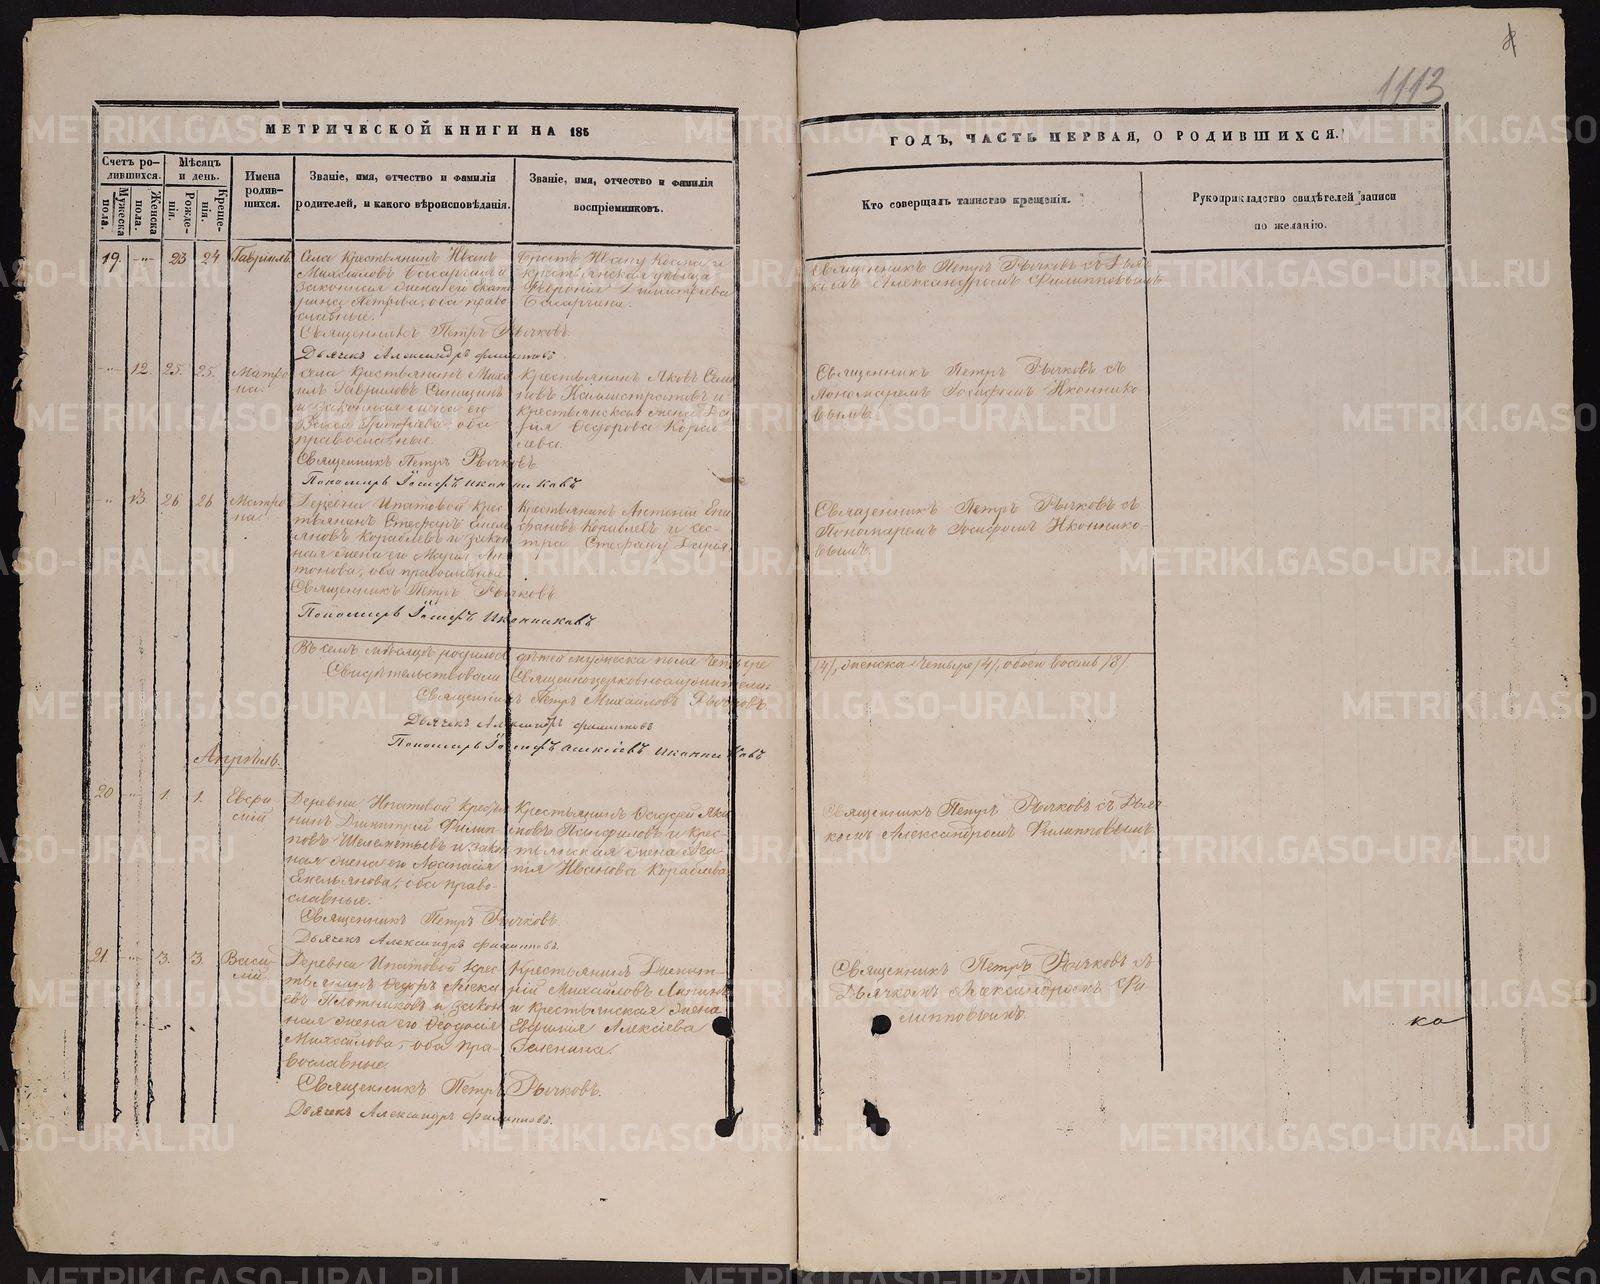 1113
МЕТРИЧЕСКОЙ КНИГИ НА 185
ГОДЪ, ЧАСТЬ ПЕРВАЯ, О РОДИВШИХСЯ.
Счетъ ро-
дившихся.
Мужеска
пола.
Женска
пола.
Мѣсяцъ
и день.
Рожде-
нія.
Креще-
нія.
Имена
родив-
шихся.
Званіе, имя, отчество и фамилія
родителей, и какого вѣроисповѣданія.
Званіе, имя, отчество и фамилія
воспріемниковъ.
Кто совершалъ таинство крещенія.
Рукоприкладство свидѣтелей записи
по желанію.
19. 23 24 Гавріилъ
Села Крестьянинъ Иванъ
Михайловъ
законная жена его Екате
рина Петрова, оба право-
славные.
Священникъ Петръ Рычковъ.
Дьячекъ Александръ Филиповъ
Братъ Ивану Косма и
крестьянская
Февронія Димитріева
Священникъ Петръ Рычковъ съ Дья
комъ Александромъ Филипповымъ
12. 25. 25. Матро
на.
села Крестьянинъ Миха
илъ Гавриловъ Синицинъ
и законная жена его
оба
православные.
Священникъ Петръ Рычковъ
Пономарь Іосифъ Иконниковъ
Крестьянинъ Яковъ Семе
новъ Калистратовъ и
Крестьянская жена
Федорова Кораб
лева.
Священникъ Петръ Рычковъ съ
Пономаремъ Іосифомъ Иконнико
вымъ.
13. 26 26 Матро
на.
Деревни Ипатовой Крес
тьянинъ Стефанъ Емель
яновъ Кораблевъ и закон
ная жена его Ан
тонова, оба православные
Священникъ Петръ Рычковъ
Пономарь Іосифъ Иконниковъ
Крестьянинъ Антоній Епи
фановъ Кораблевъ и сес-
тра Стефану Дарія.
Священникъ Петръ Рычковъ съ
Пономаремъ Іосифомъ Иконнико
вымъ.
Въ семъ мѣсяцѣ родилось дѣтей мужеска пола четыре
/4/, женска четыре /4/, обоего восемь /8/
Свидѣтельствовали Священноцерковнослужители:
Священникъ Петръ Михайловъ Рычковъ.
Дьячекъ Александръ Филиповъ
Пономарь Іосифъ Алексѣевъ Иконниковъ
Апрѣль.
20 1. 1. Евфи
мій
Деревни Ипатовой Крестья
нинъ Димитрій Филип
повъ Шелементьевъ и закон
ная жена его Афанасія
Емельянова, оба право-
славные.
Священникъ Петръ Рычковъ.
Дьячекъ Александръ Филиповъ.
Крестьянинъ Федосей Яки
мовъ Панфиловъ и Крес-
тьянская жена Ага
пія Иванова Кораблева
Священникъ Петръ Рычковъ съ Дьяч
комъ Александромъ Филипповымъ
21. 3. 3. Васи
лій.
Деревни Ипатовой Крес
тьянинъ Федоръ
Плотниковъ и закон
ная жена его Феодосія
Михайлова, оба пра-
вославные.
Священникъ Петръ Рычковъ.
Дьячекъ Александръ Филиповъ.
Крестьянинъ Димит-
рій Михайловъ
и Крестьянская жена
Евфимія Алексіева
Священникъ Петръ Рычковъ съ
Дьячкомъ Александромъ Фи
липповымъ
ко
METRIKI.GASO-URAL.RU